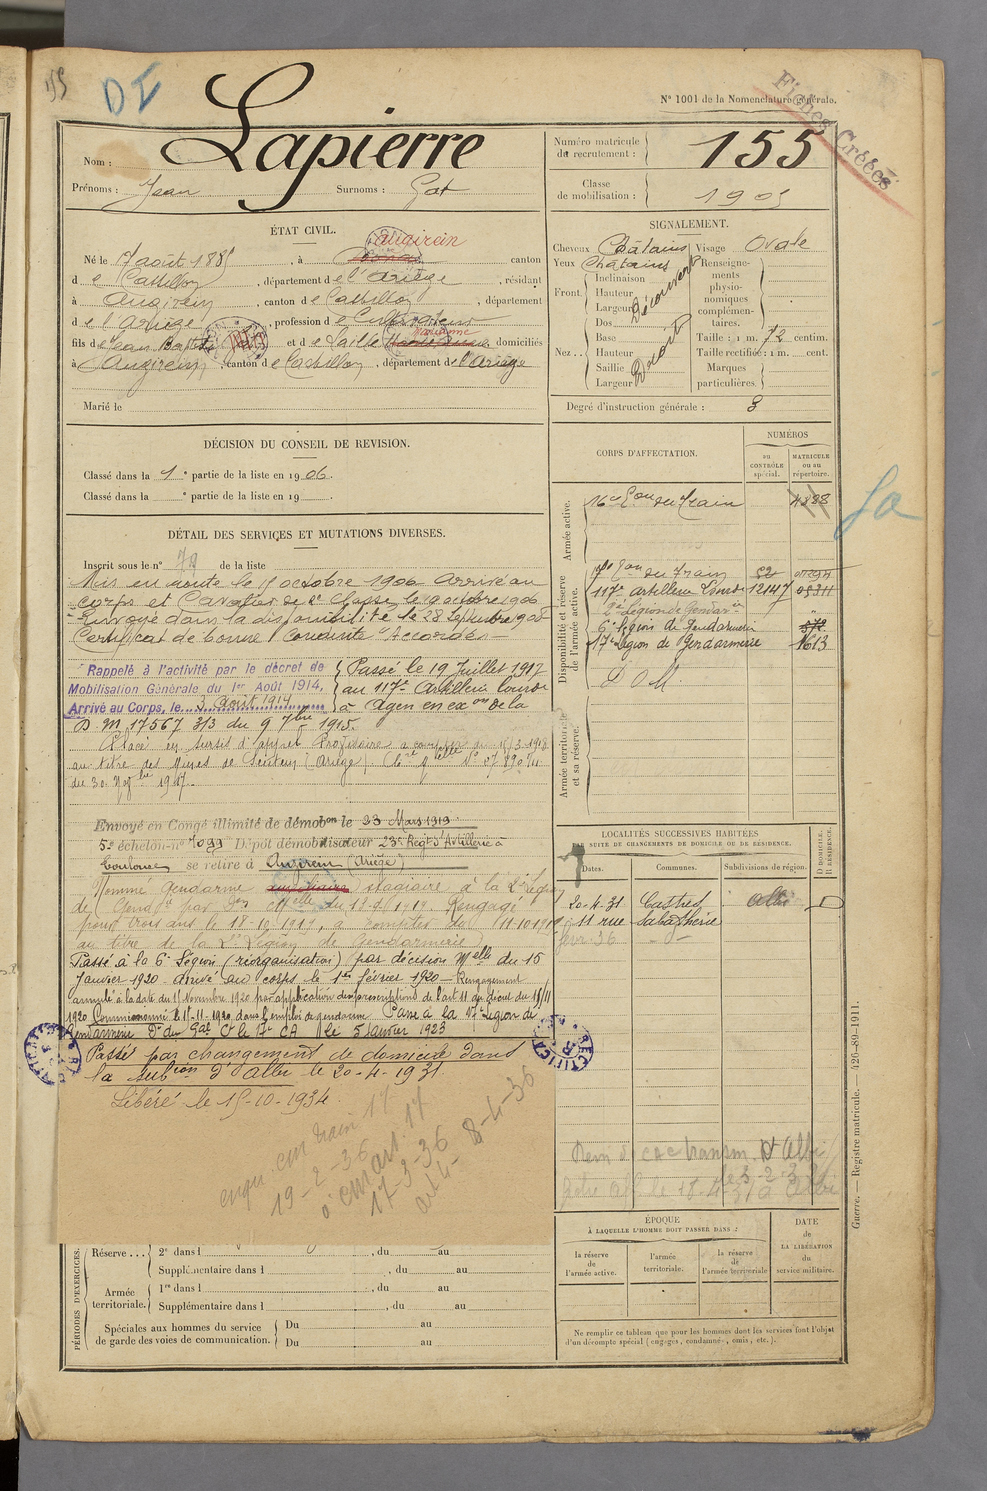 155
DI
N° 1001 de la Nomenclature générale.
Fiches Créées
Nom : Lapierre
Prénoms : Jean Surnoms : Gat
Numéro matricule du recrutement : 155
Classe de mobilisation : 1905
ÉTAT CIVIL.
augirein
Né le 17 août 1885, à canton
de Castillon, département de l'Ariège, résidant
à Augirein, canton de Castillon, département
de l'Ariège, profession de Cultivateur
fils de Jean Baptiste et de Laille Marianne domiciliés
à Augirein, canton de Castillon, département de l'Ariège
Marié le
SIGNALEMENT.
Cheveux Châtains Visage Ovale
Yeux Châtains
Front. Inclinaison Hauteur Largeur Découvert
Nez.. Dos Base Hauteur Saillie Largeur Droit
Renseignements physionomiques complémentaires.
Taille : 1 m. 72 centim.
Taille rectifiée : 1 m. cent.
Marques particulières.
Degré d'instruction générale : 3
DÉCISION DU CONSEIL DE REVISION.
Classé dans la 1e partie de la liste en 1906.
Classé dans la e partie de la liste en 19
DÉTAIL DES SERVICES ET MUTATIONS DIVERSES.
Inscrit sous le n° 79 de la liste
Mis en route le 17 octobre 1906 Arrivé au
corps et Cavalier de 2e classe le 19 octobre 1906
Envoyé dans la disponibilité le 28 Septembre 1908
Certificat de bonne Conduite "Accordé"
Rappelé à l'activité par le décret de
Mobilisation Générale du 1er Août 1914,
Arrivé au Corps, le 3 Août 1914
Passé le 19 Juillet 1917
au 117e Artillerie lourde
à Agen en exon de la
D.M. 17567 3/3 du 9 7bre 1915.
Placé en sursis d'appel
au titre des Mines de Sentein (Ariège)
du 30. Nov bre 1917.
Envoyé en Congé illimité de démobon le 23 Mars 1919
5e échelon n° 1099 Dépôt démobilisateur 23e Regt d'Artillerie à
Toulouse se retire à Augirein (Ariège)
Nommé gendarme auxiliaire stagiaire à la 2e Légion
de Gendie par Don Melle du 18.9.1919. Rengagé
pour trois ans le 18-10-1919, à compter du 11 10 1919
au titre de la 2e Légion de Gendarmerie
Passé à la 6e Légion (réorganisation) par décision Melle du 15
Janvier 1920 arrivé au corps le 1er février 1920 - Rengagement
annulé à la date du 11 Novembre 1920 par application des prescriptions de l'art 11 du décret du 15/11
1920 Commissionné le 11-11-1920, dans l'emploi de gendarme Passé à la 17e Légion de
Gendarmerie Dn du Gal Ct le 17e CA le 5 Janvier 1923
Passé par changement de domicile dans
la subion d'Albi le 20-4-1931.
Libéré le 15-10-1934
train 17
19-2-36
art. 17
17-3-36
8-4-36
CORPS D'AFFECTATION.
NUMÉROS
au CONTRÔLE spécial.
MATRICULE ou au répertoire.
Armée active.
16e Eon du Train 4388
Disponibilité et réserve de l'armée active.
17e Eon du Train 52
117e artillerie Lourde 12147 05211
2e Légion de Gendarie
6e légion de Gendarmerie 572
17e Légion de Gendarmerie 1613
D O M.
Armée territoriale et sa réserve.
LOCALITÉS SUCCESSIVES HABITÉES
PAR SUITE DE CHANGEMENTS DE DOMICILE OU DE RÉSIDENCE.
Dates. Communes. Subdivisions de région. D. DOMICILE. R. RÉSIDENCE.
20-4-31 Castres Albi D
11 rue Sabatherie
fevr 36
ÉPOQUE
À LAQUELLE L'HOMME DOIT PASSER DANS :
la réserve de l'armée active.
l'armée territoriale.
la réserve de l'armée territoriale
DATE de LA LIBÉRATION du service militaire.
Ne remplir ce tableau que pour les hommes dont les services font l'objet
d'un décompte spécial (engagés, condamnés, omis, etc.).
PÉRIODES D'EXERCICES.
Réserve ... 2e dans l , du au
Supplémentaire dans l , du au
Armée territoriale. 1re dans l , du au
Supplémentaire dans l , du au
Spéciales aux hommes du service de garde des voies de communication. Du au
Du au
Guerre. — Registre matricule. — 426-89-1911.